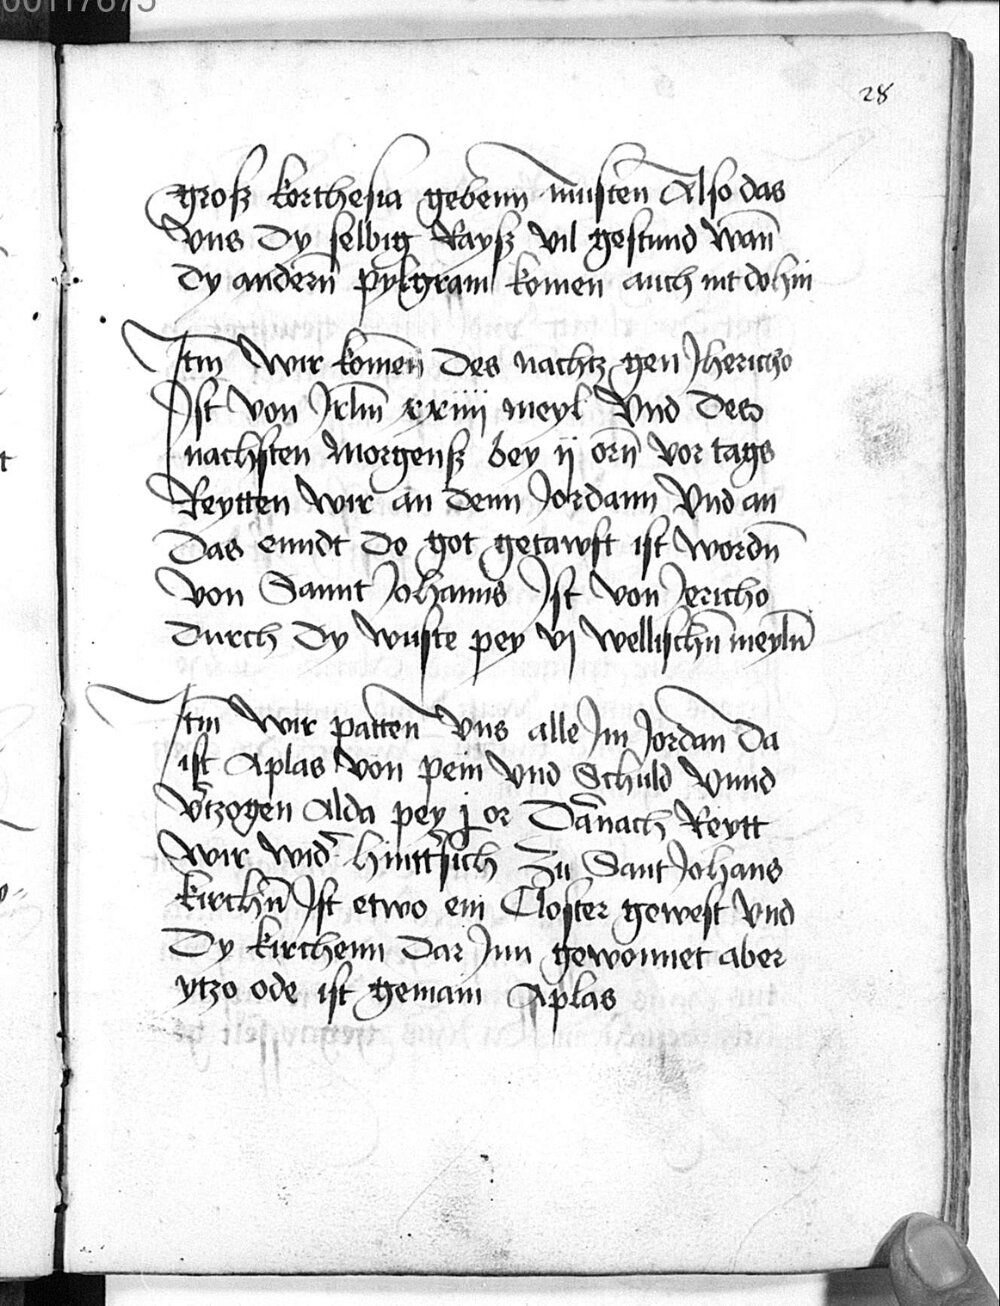 00117875
28
groß korthesia gebenn musten Also das
vns Dy selbig Rayß vil gestund wan̄
Dy andern̄ pylgram komen auch nit dohin
Itm̄ wir komen Des nachtz gen Jhericho
Ist von Jrlm̄ xxiiij meyl Vnd Des
nachsten Morgenß bey ij orn̄ vor tags
Reytten wir an Denn Jordann Vnd an
Das enndt Do got getawft ist wordn̄
von Sannt Johanns Ist von Jericho
Durch Dy wuste pey vj wellischn̄ meyln̄
Itm̄ wir patten vns alle Im Jordan Da
ist Aplas von pein vnd Schuld Vnnd
v̄tzogen Alda pey j or Dar̄nach Reytt
wir wid̄ hintt̄sich Zu Sant Johans
kirchn̄ Ist etwo ein Closter gewest Vnd
Dy kirchenn Dar Inn gewonnet aber
ytzo ode ist gemain Aplas